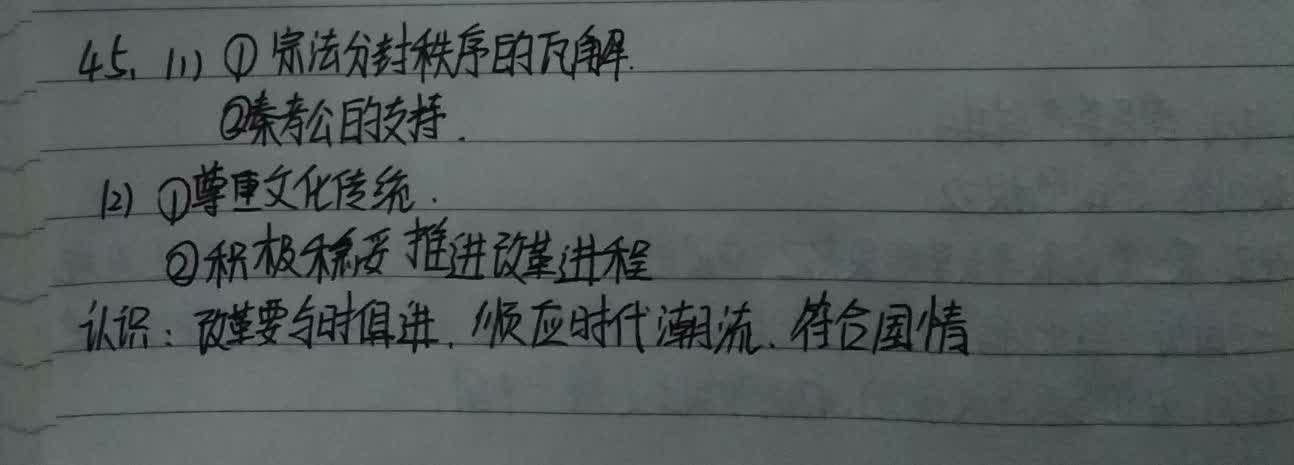 45. (1) ① 宗法分封秩序的瓦解.
②秦孝公的支持.
(2) ①尊重文化传统.
②积极稳妥推进改革进程
认识：改革要与时俱进，顺应时代潮流、符合国情